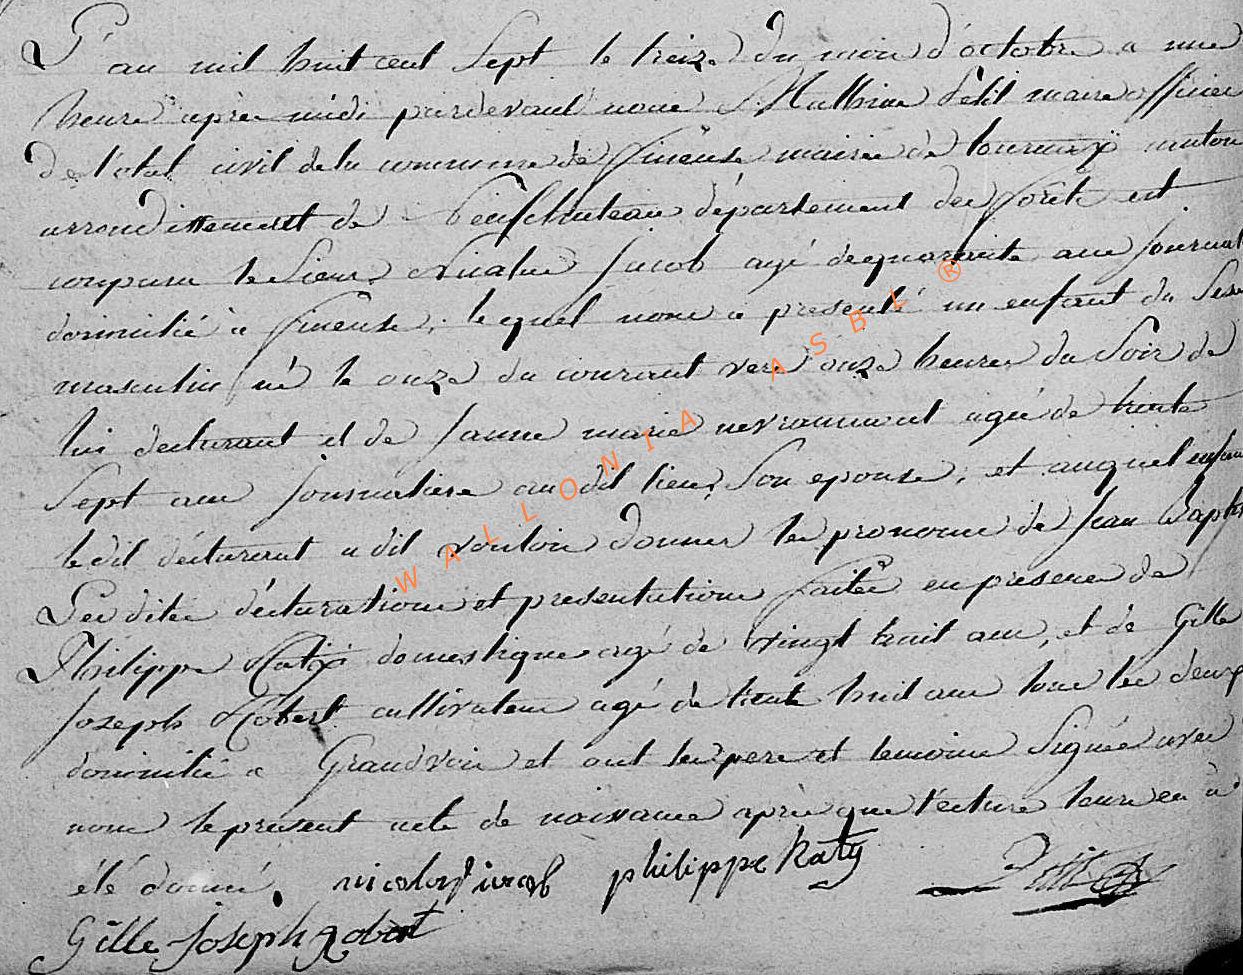 L'an mil huit cent Sept le treize du mois d'octobre a une
heure après midi pardevant nous Mathieu Petit maire officier
de l'etat civil de la commune de fineuse mairie de tournay canton
arrondissement de Neufchateau département des forêts est
comparu le Sieur Nicolas Jacob agé de quarante ans journal
domicilié à fineuse, lequel nous a presenté un enfant du Sexe
masculin né le onze du courant vers onze heures du Soir de
lui declarant et de Janne marie agée de trente
Sept ans journaliere au dit lieu, Son epouse, et auquel enfant
le dit déclarant a dit vouloir donner les prenoms de Jean Baptis
Les dites déclarations et presentations faites en presence de
Philippe Katÿ domestique agé de vingt huit ans, et de Gille
Joseph Robert cultivateur agé de trente huit ans tous les deux
domicilié a Grandvoir et ont les pere et temoins Signés avec
nous le present acte de naissance après que lecture leure en a
été donné. nicolas jacob philippe Katÿ Petit
Gille Joseph Robert
W A L L O N I A A S B L ®